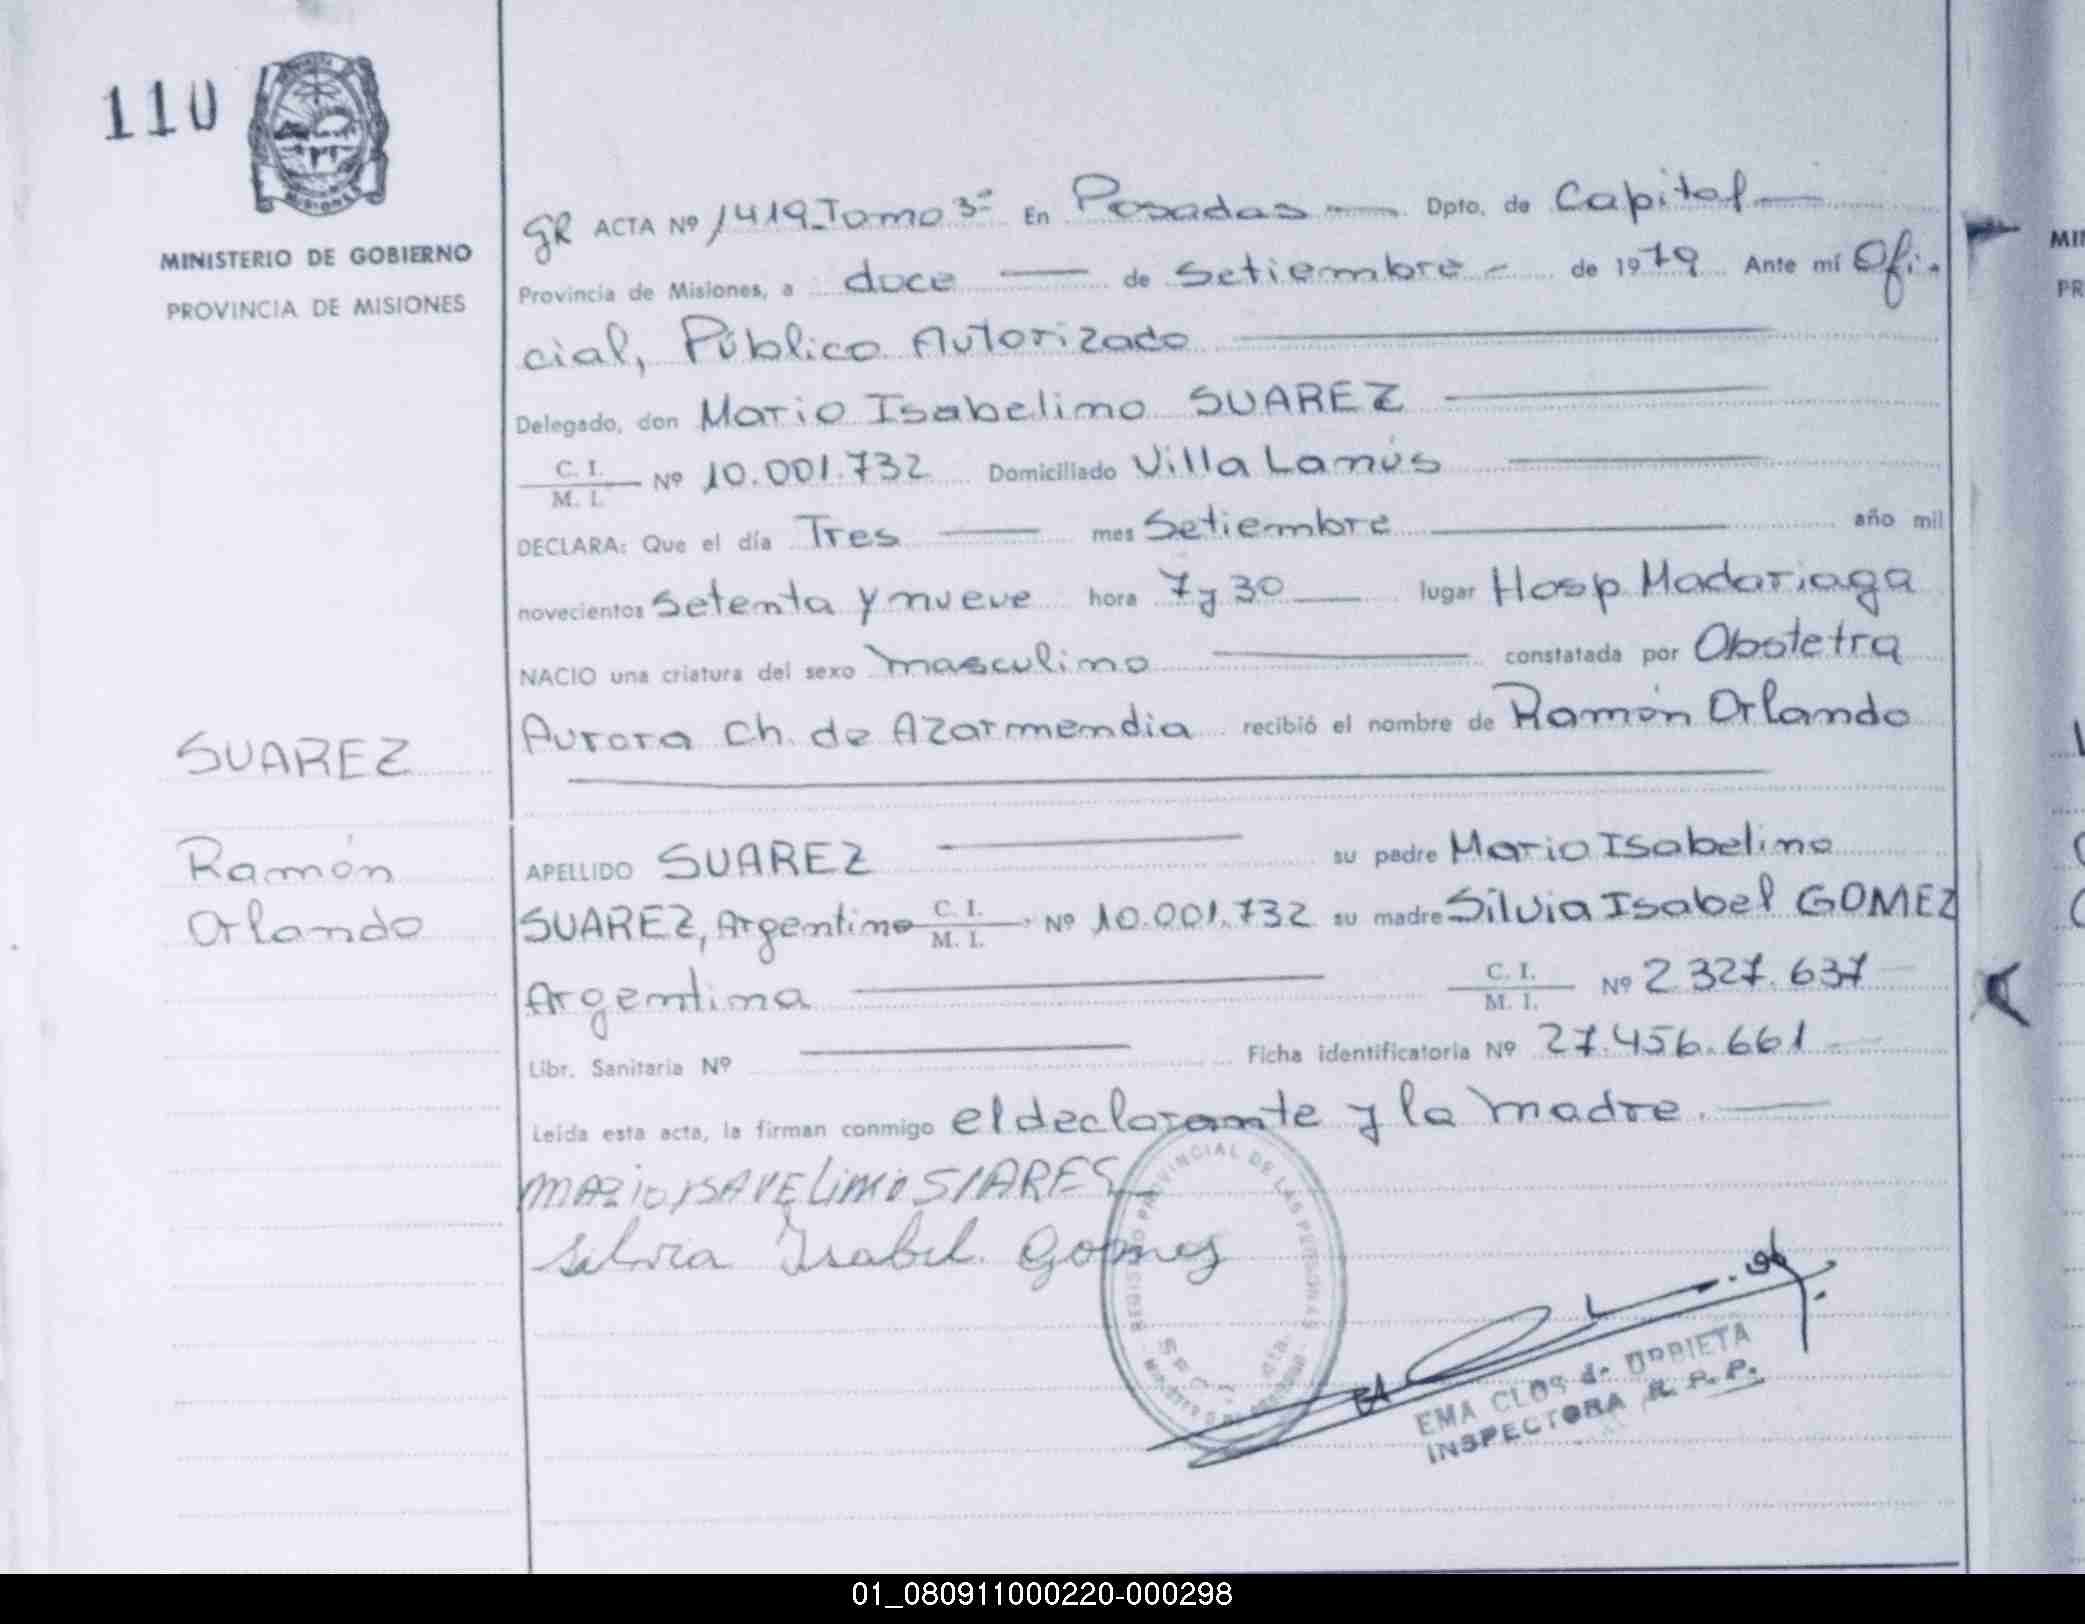 110
MISIONES
MINISTERIO DE GOBIERNO
PROVINCIA DE MISIONES
gR ACTA Nº 1419_Tomo 3º En Posadas Dpto. de Capital
Provincia de Misiones, a doce de Setiembre de 1979 Ante mí Ofi-
cial, Público Autorizado
Delegado, don Mario Isabelino SUAREZ
C. I.
M. I. Nº 10.001.732 Domiciliado Villa Lanús
DECLARA: Que el día Tres mes Setiembre año mil
novecientos Setenta y nueve hora 7 y 30 lugar Hosp Madariaga
NACIO una criatura del sexo masculino constatada por Obstetra
Aurora Ch. de Azarmendia recibió el nombre de Ramón Orlando
SUAREZ
Ramón
Orlando
APELLIDO SUAREZ su padre Mario Isabelino
SUAREZ, Argentino C. I. M. I. Nº 10.001.732 su madre Silvia Isabel GOMEZ
Argentina C. I. M. I. Nº 2.327.637
Libr. Sanitaria Nº Ficha identificatoria Nº 27.456.661
Leída esta acta, la firman conmigo el declarante y la madre.
MARIO ISAVELINO SIARES
Silvia Isabel Gomes
REGISTRO PROVINCIAL DE LAS PERSONAS
EMA CLOS de URBIETA
INSPECTORA R. P. P.
01_080911000220-000298